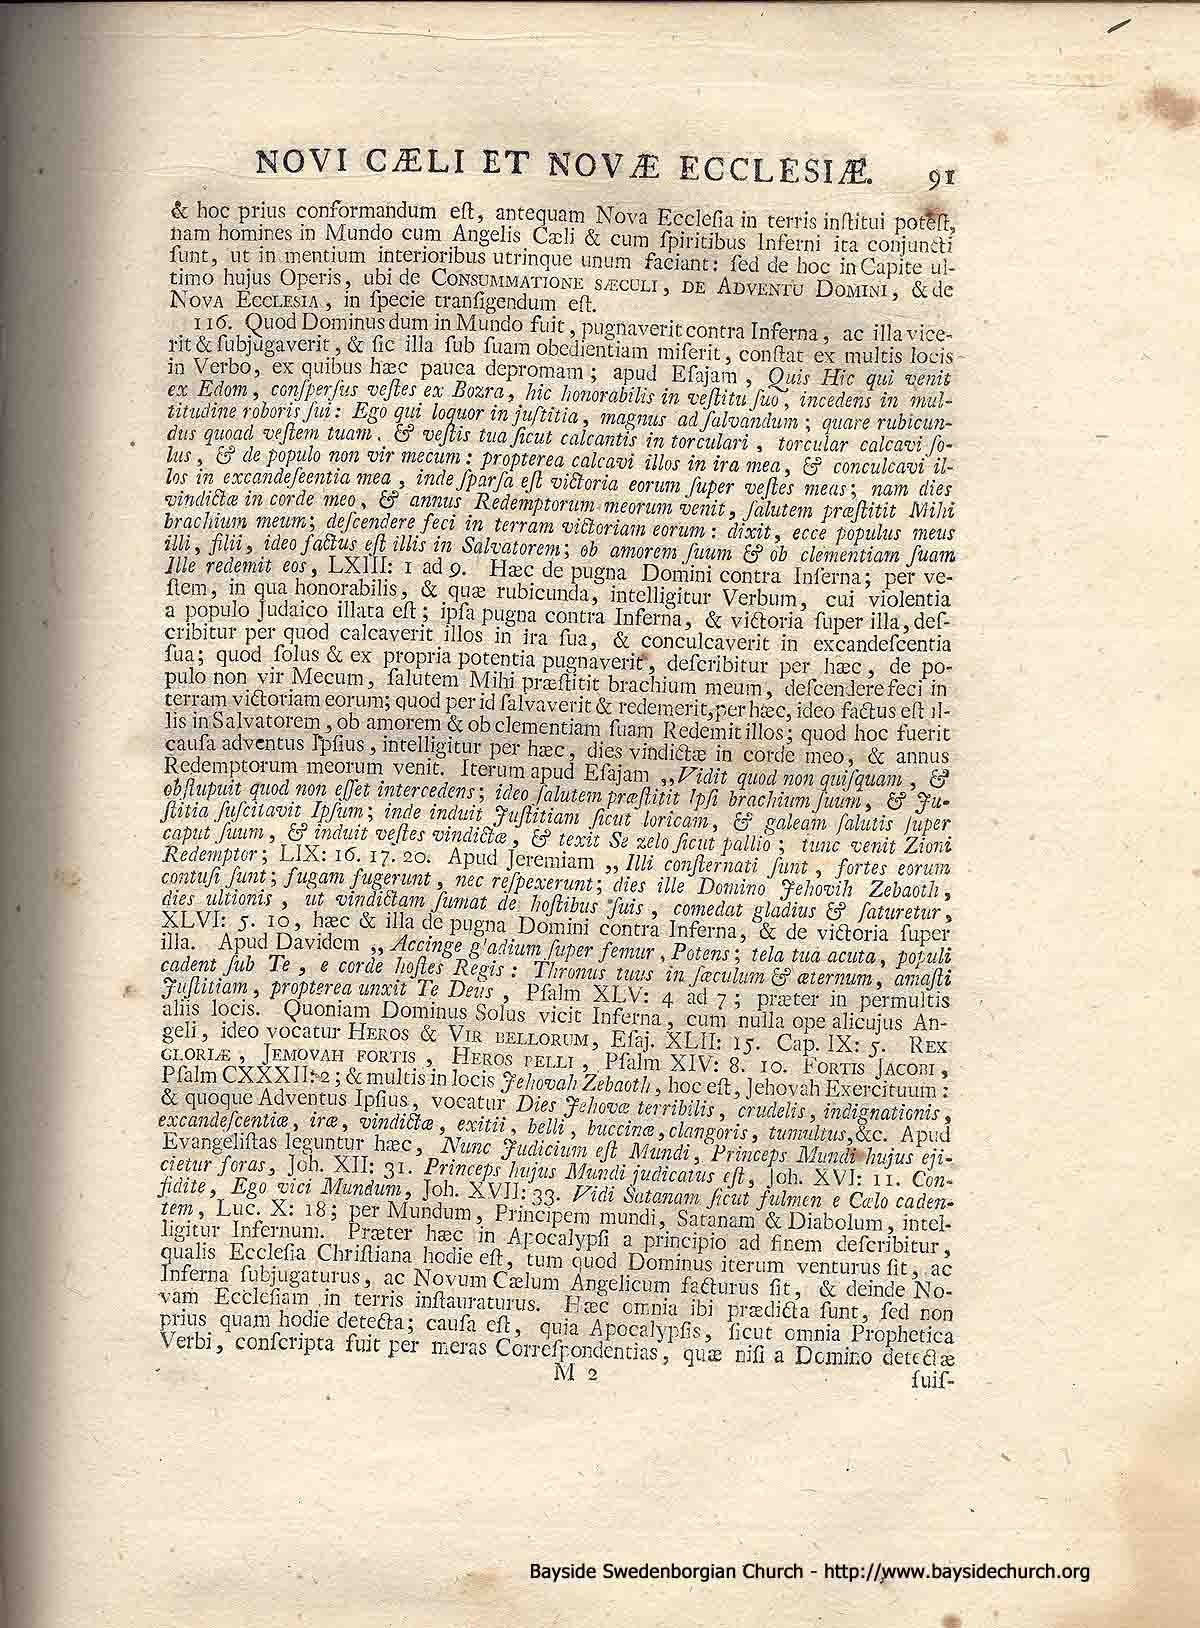 NOVI CÆLI ET NOVÆ ECCLESIÆ. 91
& hoc prius conformandum eſt, antequam Nova Eccleſia in terris inſtitui poteſt,
nam homines in Mundo cum Angelis Cæli & cum ſpiritibus Inferni ita conjuncti
ſunt, ut in mentium interioribus utrinque unum faciant: ſed de hoc in Capite ul-
timo hujus Operis, ubi de CONSUMMATIONE SÆCULI, DE ADVENTU DOMINI, & de
NOVA ECCLESIA, in ſpecie tranſigendum eſt.
116. Quod Dominus dum in Mundo fuit, pugnaverit contra Inferna, ac illa vice-
rit & ſubjugaverit, & ſic illa ſub ſuam obedientiam miſerit, conſtat ex multis locis
in Verbo, ex quibus hæc pauca depromam; apud Eſajam, Quis Hic qui venit
ex Edom, conſperſus veſtes ex Bozra, hic honorabilis in veſtitu ſuo, incedens in mul-
titudine roboris ſui: Ego qui loquor in juſtitia, magnus ad ſalvandum; quare rubicun-
dus quoad veſtem tuam, & veſtis tua ſicut calcantis in torculari, torcular calcavi ſo-
lus, & de populo non vir mecum: propterea calcavi illos in ira mea, & conculcavi il-
los in excandeſcentia mea, inde ſparſa eſt victoria eorum ſuper veſtes meas; nam dies
vindictæ in corde meo, & annus Redemptorum meorum venit, ſalutem præſtitit Mihi
brachium meum; deſcendere feci in terram victoriam eorum: dixit, ecce populus meus
illi, filii, ideo factus eſt illis in Salvatorem; ob amorem ſuum & ob clementiam ſuam
Ille redemit eos, LXIII: 1 ad 9. Hæc de pugna Domini contra Inferna; per ve-
ſtem, in qua honorabilis, & quæ rubicunda, intelligitur Verbum, cui violentia
a populo Judaico illata eſt; ipſa pugna contra Inferna, & victoria ſuper illa, deſ-
cribitur per quod calcaverit illos in ira ſua, & conculcaverit in excandeſcentia
ſua; quod ſolus & ex propria potentia pugnaverit, deſcribitur per hæc, de po-
pulo non vir Mecum, ſalutem Mihi præſtitit brachium meum, deſcendere feci in
terram victoriam eorum; quod per id ſalvaverit & redemerit, per hæc, ideo factus eſt il-
lis in Salvatorem, ob amorem & ob clementiam ſuam Redemit illos; quod hoc fuerit
cauſa adventus Ipſius, intelligitur per hæc, dies vindictæ in corde meo, & annus
Redemptorum meorum venit. Iterum apud Eſajam „Vidit quod non quiſquam, &
obſtupuit quod non eſſet intercedens; ideo ſalutem præſtitit Ipſi brachium ſuum, & Ju-
ſtitia ſuſcitavit Ipſum; inde induit Juſtitiam ſicut loricam, & galeam ſalutis ſuper
caput ſuum, & induit veſtes vindictæ, & texit Se zelo ſicut pallio; tunc venit Zioni
Redemptor; LIX: 16. 17. 20. Apud Jeremiam „ Illi conſternati ſunt, fortes eorum
contuſi ſunt; fugam fugerunt, nec reſpexerunt; dies ille Domino Jehovih Zebaoth,
dies ultionis, ut vindictam ſumat de hoſtibus ſuis, comedat gladius & ſaturetur,
XLVI: 5. 10, hæc & illa de pugna Domini contra Inferna, & de victoria ſuper
illa. Apud Davidem „ Accinge gladium ſuper femur, Potens; tela tua acuta, populi
cadent ſub Te, e corde hoſtes Regis: Thronus tuus in ſæculum & æternum, amaſti
Juſtitiam, propterea unxit Te Deus, Pſalm XLV: 4 ad 7; præter in permultis
aliis locis. Quoniam Dominus Solus vicit Inferna, cum nulla ope alicujus An-
geli, ideo vocatur HEROS & VIR BELLORUM, Eſaj. XLII: 15. Cap. IX: 5. REX
GLORIÆ, JEHOVAH FORTIS, HEROS BELLI, Pſalm XIV: 8. 10. FORTIS JACOBI,
Pſalm CXXXII: 2; & multis in locis Jehovah Zebaoth, hoc eſt, Jehovah Exercituum:
& quoque Adventus Ipſius, vocatur Dies Jehovæ terribilis, crudelis, indignationis,
excandeſcentiæ, iræ, vindictæ, exitii, belli, buccinæ, clangoris, tumultus, &c. Apud
Evangeliſtas leguntur hæc, Nunc Judicium eſt Mundi, Princeps Mundi hujus eji-
cietur foras, Joh. XII: 31. Princeps hujus Mundi judicatus eſt, Joh. XVI: 11. Con-
fidite, Ego vici Mundum, Joh. XVII: 33. Vidi Satanam ſicut fulmen e Cælo caden-
tem, Luc. X: 18; per Mundum, Principem mundi, Satanam & Diabolum, intel-
ligitur Infernum. Præter hæc in Apocalypſi a principio ad finem deſcribitur,
qualis Eccleſia Chriſtiana hodie eſt, tum quod Dominus iterum venturus ſit, ac
Inferna ſubjugaturus, ac Novum Cælum Angelicum facturus ſit, & deinde No-
vam Eccleſiam in terris inſtauraturus. Hæc omnia ibi prædicta ſunt, ſed non
prius quam hodie detecta; cauſa eſt, quia Apocalypſis, ſicut omnia Prophetica
Verbi, conſcripta fuit per meras Correſpondentias, quæ niſi a Domino detectæ
M 2 fuiſ-
Bayside Swedenborgian Church - http://www.baysidechurch.org